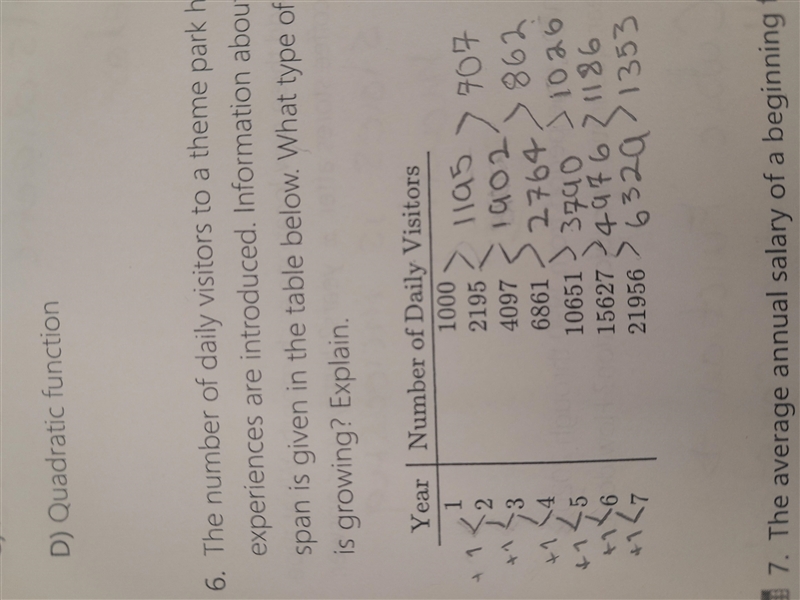 D) Quadratic function
6. The number of daily visitors to a theme park
experiences are introduced. Information about
span is given in the table below. What type of
is growing? Explain.
Year Number of Daily Visitors
1 1000
2 2195
3 4097
4 6861
5 10651
6 15627
7 21956
+1
+1
+1
+1
+1
+1
> 1195 > 707
> 1902 > 862
> 2764 > 1026
> 3790 > 1186
> 4976 > 1353
> 6329
7. The average annual salary of a beginning